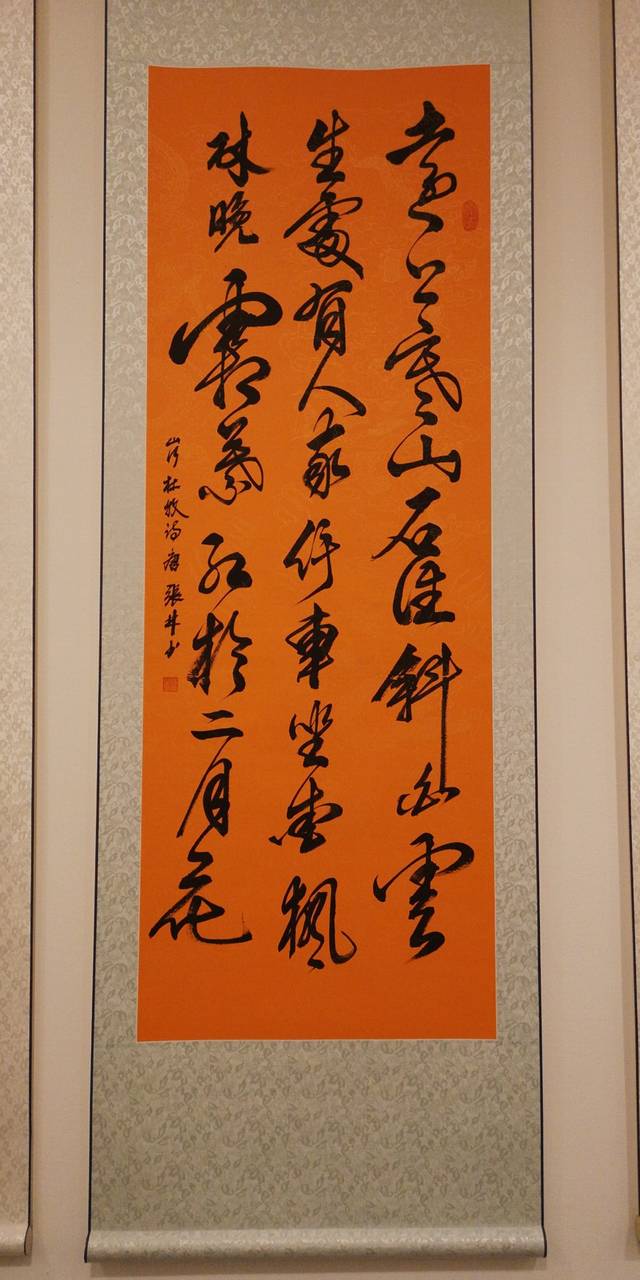 遠上寒山石徑斜白雲
生處有人家停車坐愛楓
林晚霜葉紅於二月花
山行杜牧詩張書